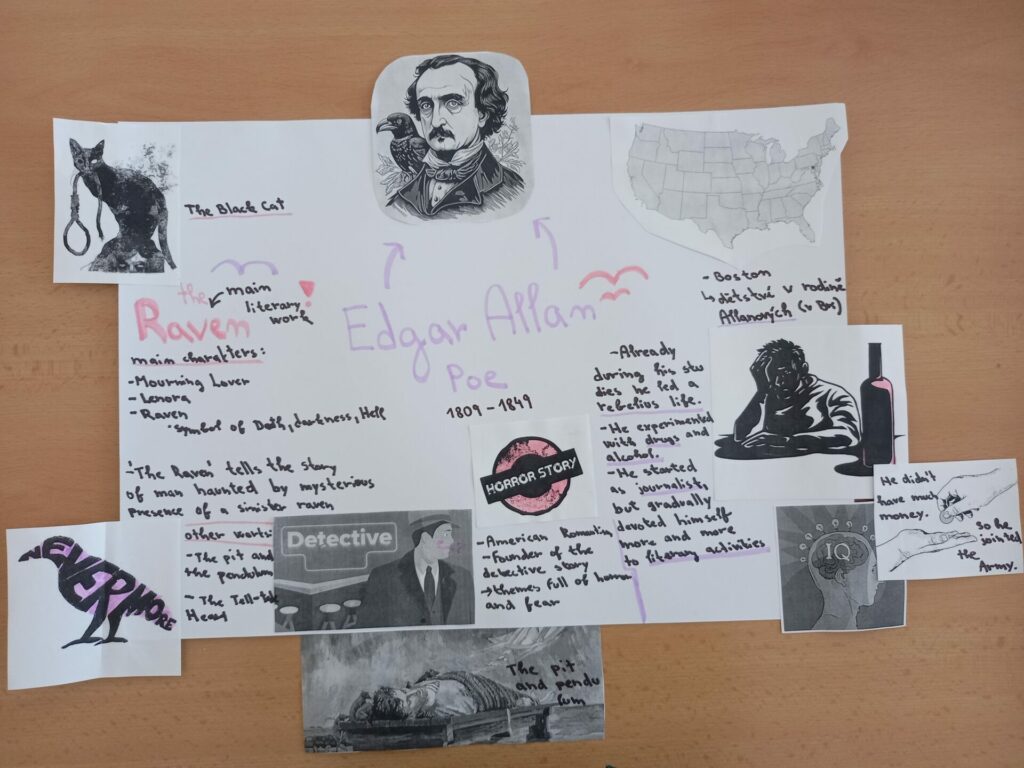 The Black Cat
the
Raven
main
literary
work
!
main charakters:
-Mourning Lover
-Lenora
-Raven
*symbol of Death, darkness, Hell
-'The Raven' tells the story
of man haunted by mysterious
presence of a sinister raven
other works:
-The pit and
the pendulum
-The Tell-tale
Heart
NEVERMORE
Edgar Allan
Poe
1809-1849
HORROR STORY
Detective
-American Romantism
-Founder of the
detective story
→themes full of horror
and fear
The pit
and pendu
lum
-Boston
↳ dětství v rodině
Allanových
-Already
during his stu
dies he led a
rebelius life.
-He experimented
with drugs and
alcohol.
-He started
as journalist,
but gradually
devoted himself
more and more
to literary activities
He didn't
have much
money.
So he
joined
the
Army.
IQ